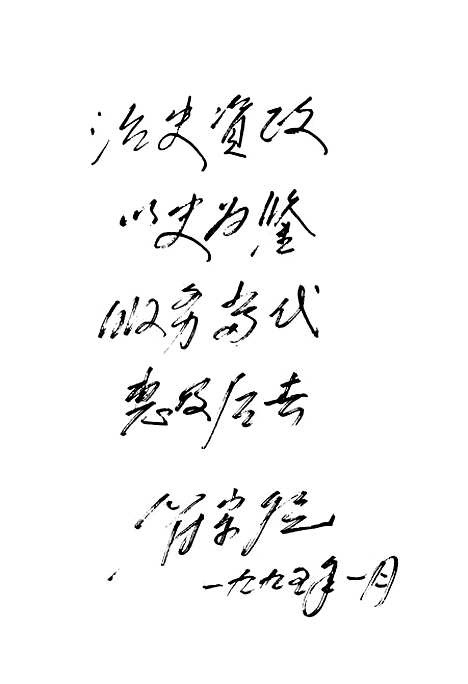 治史資政
以史为鉴
服务当代
惠及后世
一九九五年一月